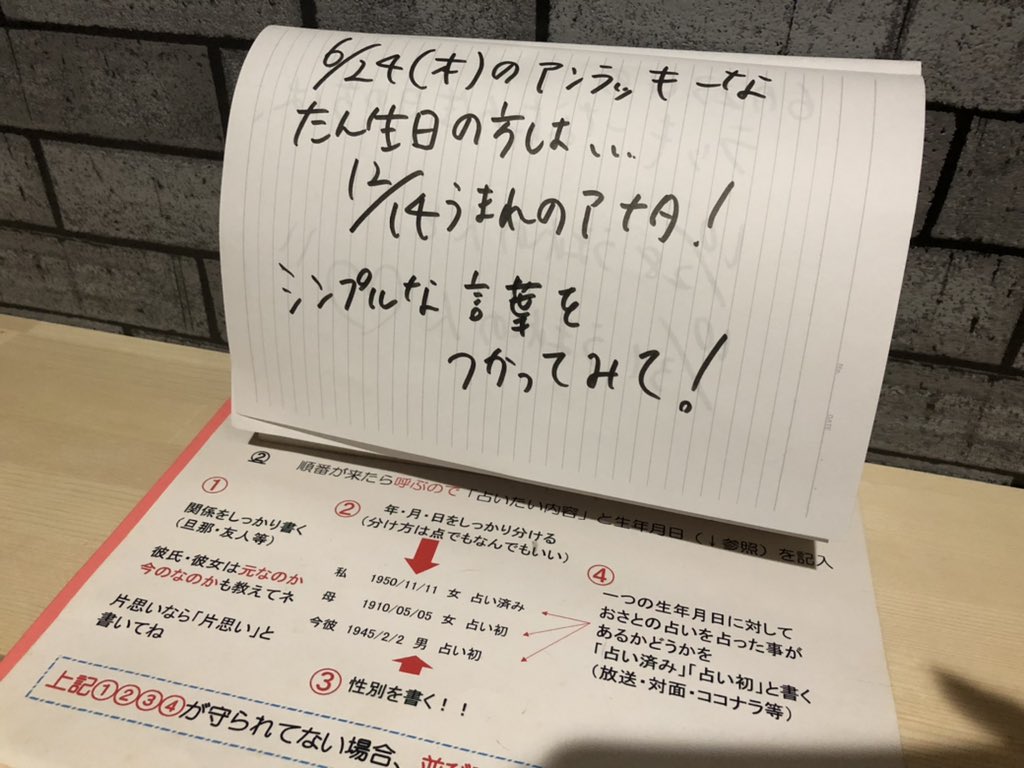 6/24(木)のアンラッキーな
たん生日の方は...
12/14うまれのアナタ!
シンプルな言葉を
つかってみて!
② 順番が来たら呼ぶので「占いたい内容」と生年月日(↓参照)を記入
①
関係をしっかり書く
(旦那・友人等)
彼氏・彼女は元なのか
今のなのかも教えてネ
片思いなら「片思い」と
書いてね
② 年・月・日をしっかり分ける
(分け方は点でもなんでもいい)
私 1950/11/11 女 占い済み
母 1910/05/05 女 占い初
今彼 1945/2/2 男 占い初
③ 性別を書く!!
④
一つの生年月日に対して
おさとの占いを占った事が
あるかどうかを
「占い済み」「占い初」と書く
(放送・対面・ココナラ等)
上記①②③④が守られてない場合、